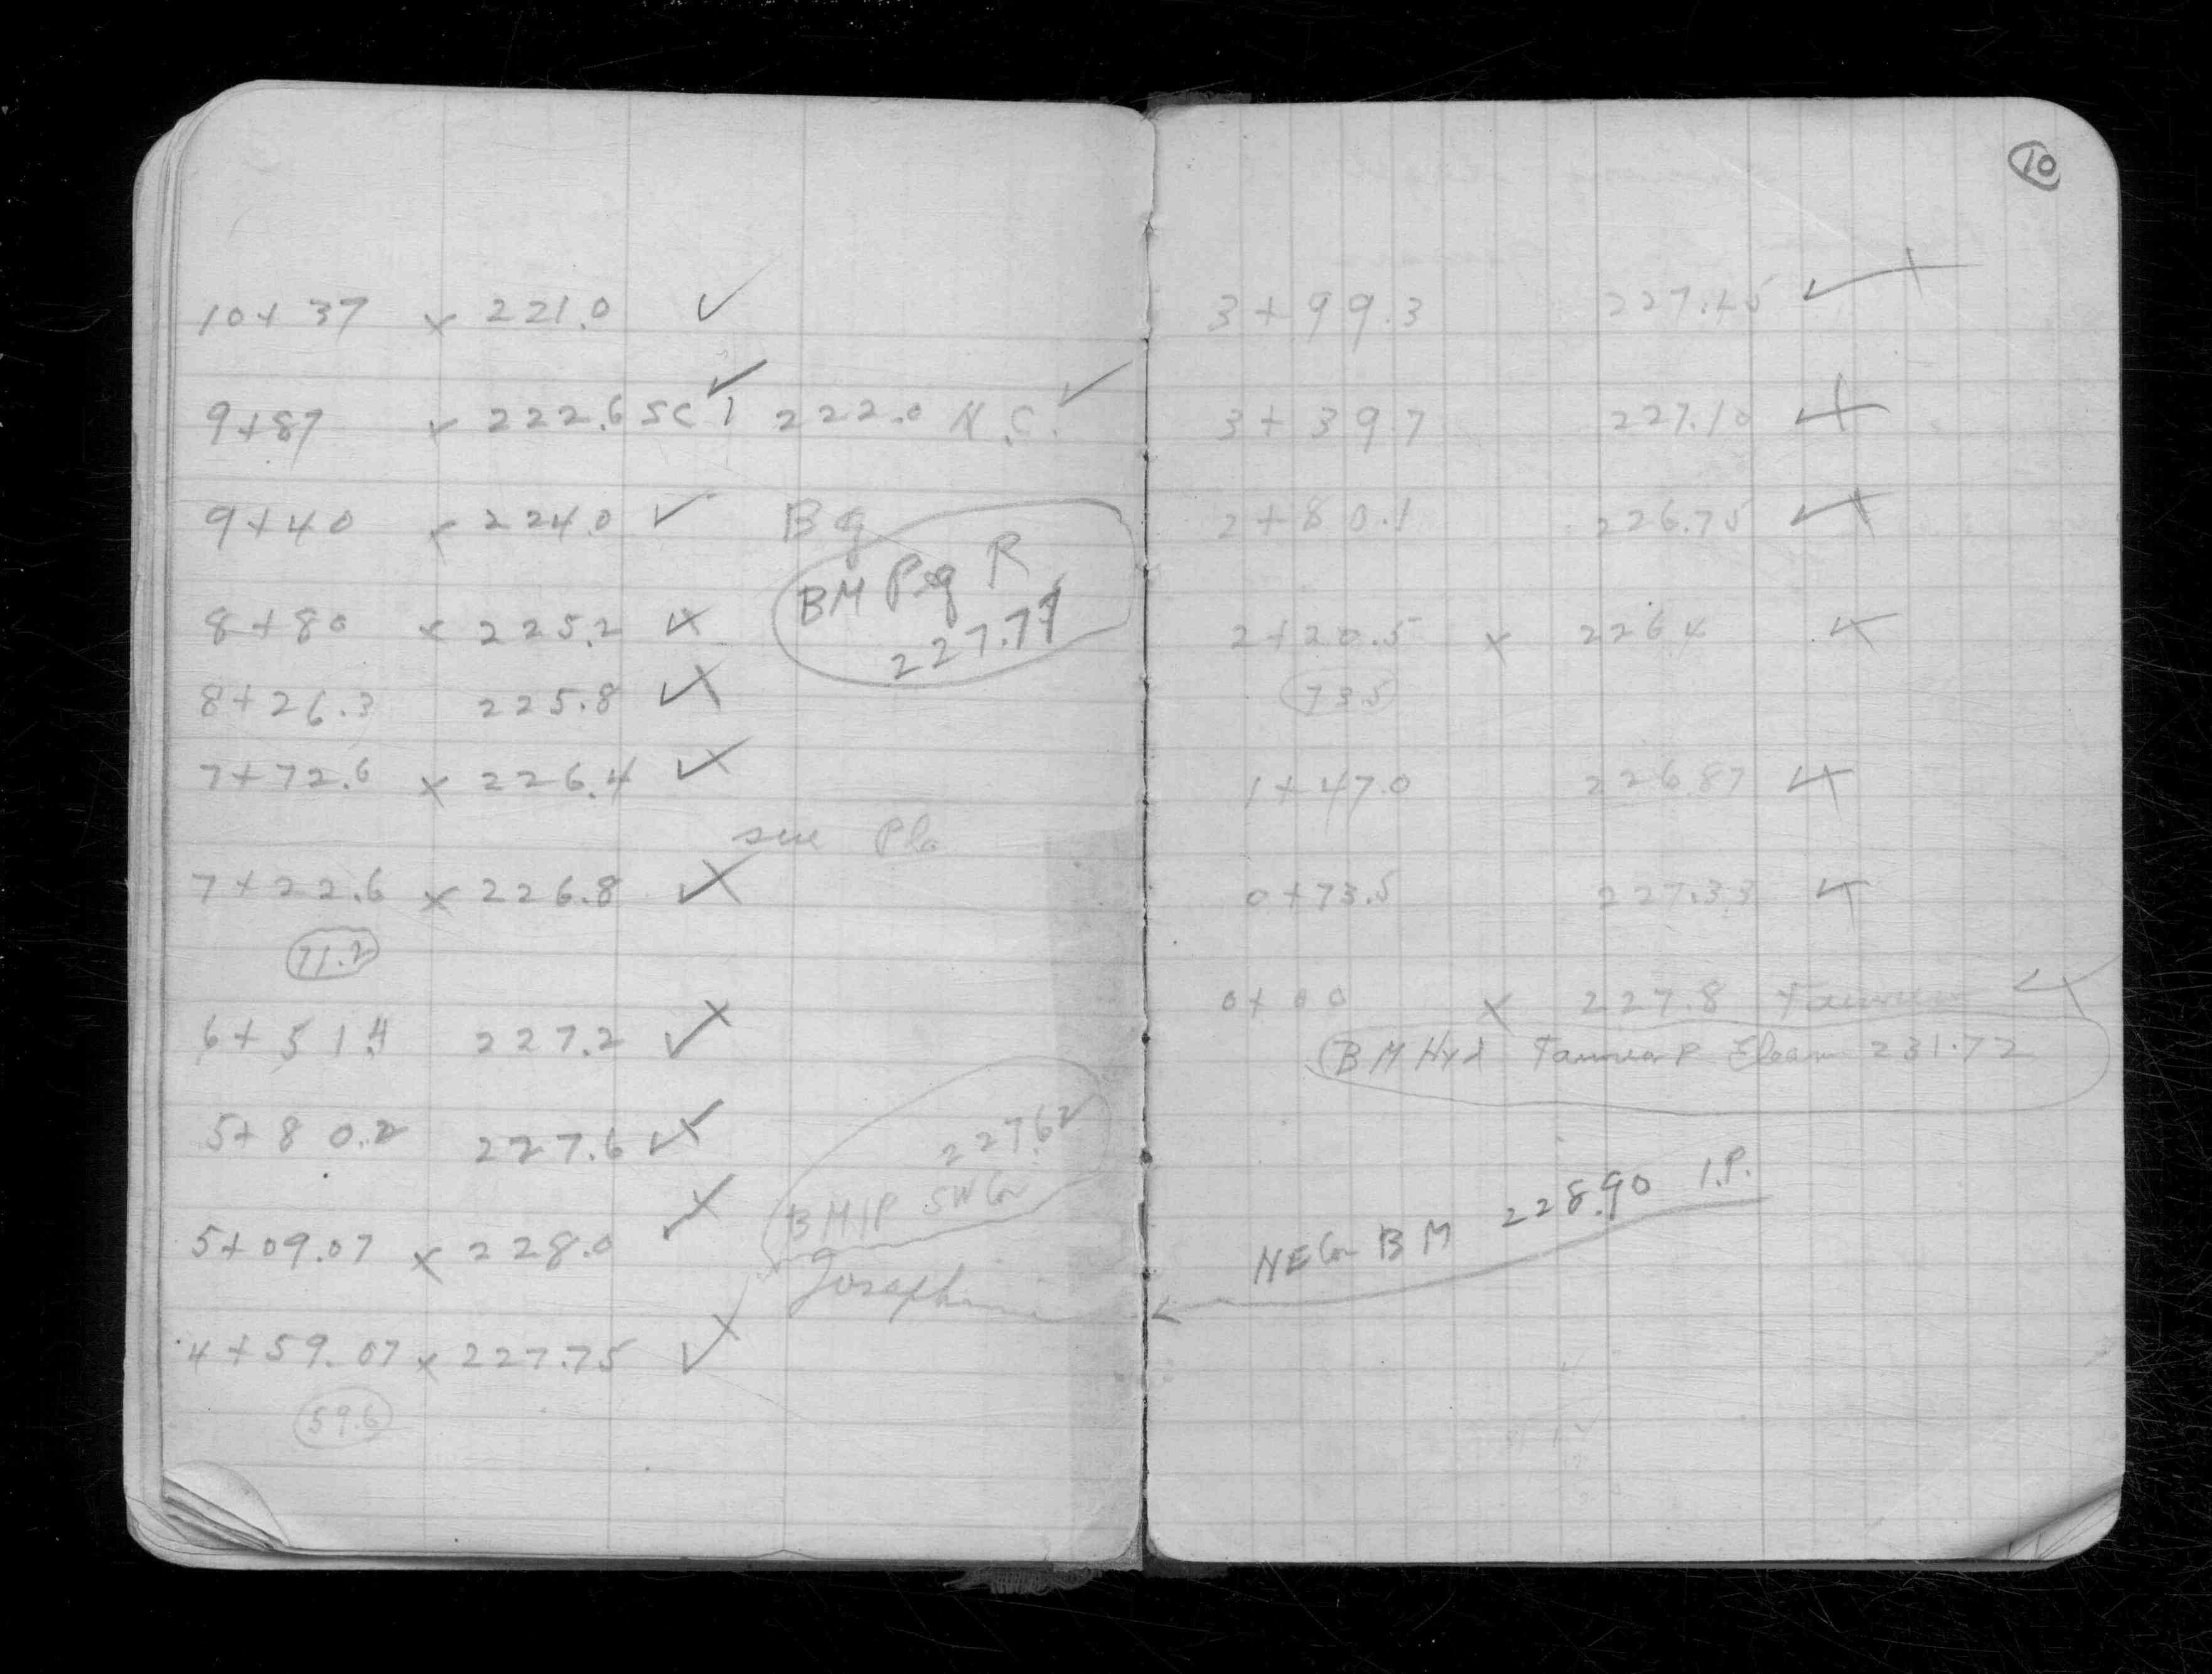 10+37 x 221.0 ✓
9+87 x 222.6 SC ✓ 222.0 N.C. ✓
9+40 x 224.0 ✓ Bg
BM Peg R
227.77
8+80 x 225.2 ✓
8+26.3 225.8 ✓
7+72.6 x 226.4 ✓
see Pla
7+22.6 x 226.8 ✓
71.2
6+51.4 227.2 ✓
5+80.2 227.6 ✓
227.62
BM IP SW Cor
Josephine
5+09.07 x 228.0 ✓
4+59.07 x 227.75 ✓
59.6
10
3+99.3 227.45 ✓
3+39.7 227.10 ✓
2+80.1 226.75 ✓
2+20.5 x 226.4 ✓
73.5
1+47.0 226.87 ✓
0+73.5 227.33 ✓
0+00 x 227.8 ✓
BM Hyd 231.72
NE Cor BM 228.90 I.P.